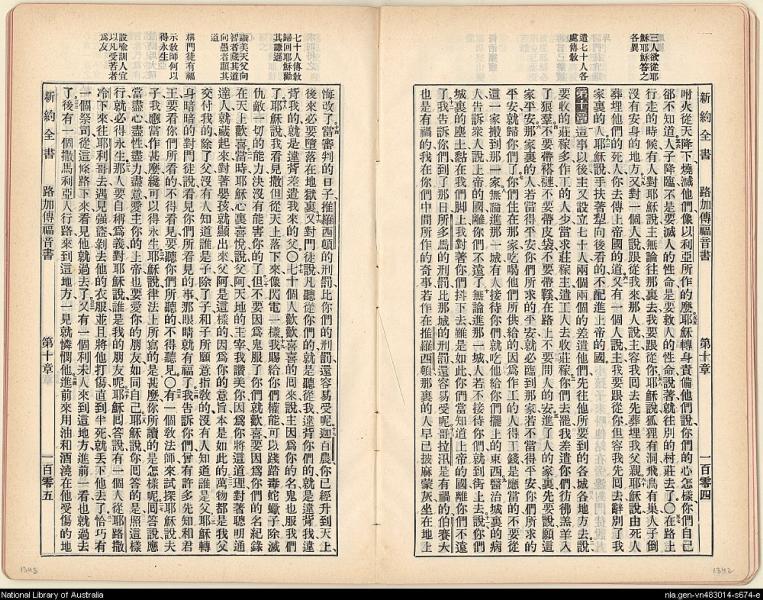 三人欲從耶
穌耶穌答之
各異
遣七十人各
處傳教
新約全書 路加傳福音書 第十章 一百零四
咐火從天降下燒滅他們像以利亞所作的麼耶穌轉身責備他們說你們的心怎樣你們自己
卻不知道人子降臨不是要滅人的性命是要救人的性命說著就往別的村莊去了〇在路上
行走的時候有人對耶穌說主無論往那裏去我要跟從你耶穌說狐狸有洞飛鳥有巢人子倒
沒有安身的地方又對一個人說跟從我來那人說主容我囘去先葬埋我父親耶穌說由死人
葬埋他們的死人你去傳上帝國的道又有一個人說主我要跟從你但容我先囘去辭別了我
家裏的人耶穌說手扶著犂向後看的不配進上帝的國
第十章 這事以後主又設立七十人兩個兩個的差遣他們先往他所要到的各城各地方去說
要收的莊稼多作工的人少當求莊稼主遣工人去收莊稼你們去罷我差遣你們彷彿羔羊入
了狼羣不要帶褡褳不要帶皮袋不要帶鞋在路上不要問人的安進了人的家裏先要說願這
家平安那家裏的人若當得平安你們所求的平安就必臨到那家若不當得平安你們所求的
平安就歸你們了你們住在那家吃喝他們所供給的因爲作工的人得工錢是應當的不要從
這一家搬到那一家無論進那一城有人接待你們就吃他給你們擺上的東西醫治城裏的病
人告訴衆人說上帝的國離你們不遠了無論進那一城人若不接待你們就到街上去說你們
城裏的塵土黏在我們脚上我對著你們抖下去雖是如此你們當知道上帝的國離你們不遠
了我告訴你們到了那日所多馬的刑罰比那城的刑罰還容易受呢哥拉汛是有禍的伯賽大
也是有禍的我在你們中間所作的奇事若作在推羅西頓那裏的人早已披麻蒙灰坐在地上
1342
七十人傳教
歸囘耶穌勸
其謙遜
讚美天父向
智者藏其道
向愚者顯其
道
稱門徒有福
示敎師何以
得永生
設喻訓人宜
以凡受苦者
爲友
悔改了當審判的日子推羅西頓的刑罰比你們的刑罰還容易受呢迦百農你已經升到天上
後來必要墮落在地獄裏又對門徒說凡聽從你們的就是聽從我違背你們的就是違背我違
背我的就是違背差遣我來的父〇七十個人歡歡喜喜的囘來說主因爲你的名鬼也服我們
了耶穌說我看見撒但從天上下來像閃電一樣我賜給你們權能可以踐踏毒蛇蠍子除滅
仇敵一切的能力決沒有能害你的了但不要因爲鬼服了你們就歡喜要因爲你們的名紀錄
在天上歡喜當時耶穌心裏喜悅說父阿天地的主宰我讚美你因爲你將這道理對著聰明通
達人就藏起來對著嬰孩就顯出來父阿是這樣的因爲你的意旨本是如此的萬物都是我父
交付我的除了父沒有人知道誰是子除了子和子所願意指教的沒有人知道誰是父耶穌轉
身暗暗的對門徒說看見你們所看見的事那眼睛就有福了我告訴你們曾有許多先知和君
王要看你們所看的不得看見要聽你們所聽的不得聽見〇有一個敎法師來試探耶穌說夫
子我應當作甚麼纔可以得永生耶穌說律法上所寫的是甚麼你所讀的是怎樣呢囘答說應
當盡心盡性盡力盡意愛主你的上帝也要愛你的朋友如同自己耶穌說你囘答的是照這樣
行就必得永生那人要自稱爲義對耶穌說誰是我的朋友呢耶穌囘答說有一個人從耶路撒
冷下來往耶利哥去遇見強盜剝去他的衣服並且將他打傷直到半死就丟下他去了恰巧有
一個祭司從這條路下來看見他就過去了又有一個利未人來到這地方進前一看也就過去
了後有一個撒馬利亞人行路來到這地方一見就憐憫他進前來用油和酒澆在他受傷的地
新約全書 路加傳福音書 第十章 一百零五
1343
National Library of Australia
nla.gen-vn483014-s674-e